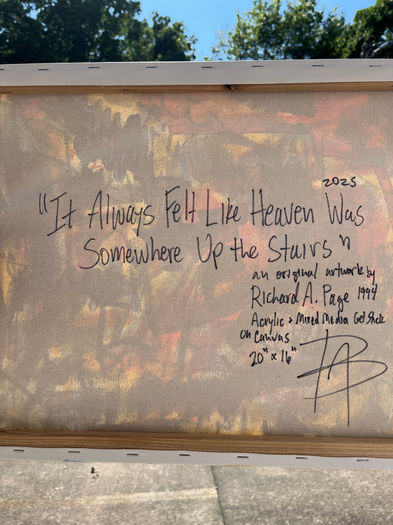 2025
"It Always Felt Like Heaven Was
Somewhere Up the Stairs"
an original artwork by
Richard A. Page 1994
Acrylic & Mixed Media Gel Stick
on Canvas
20" x 16"